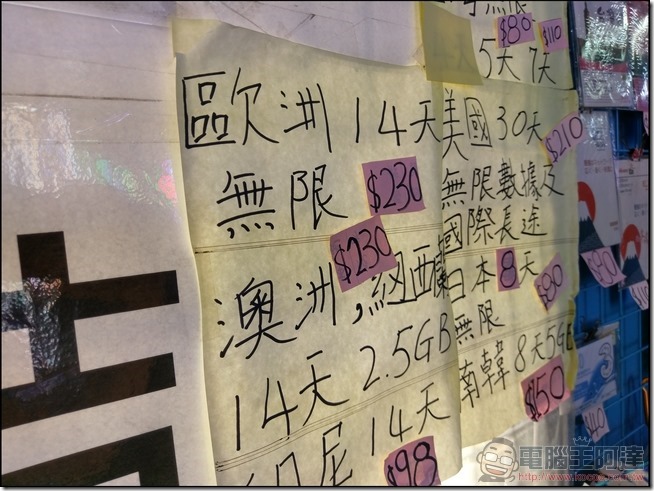 歐洲 14天
無限 $230
$230
澳洲,紐西蘭
14天 2.5GB
印尼 14天
$98
$80 $110
5天 7天
美國 30天
$210
無限數據及
國際長途
日本 8天
無限
南韓 8天 5GB
$150
$90
$110
$140
電腦王阿達
http://www.kocpc.com.tw